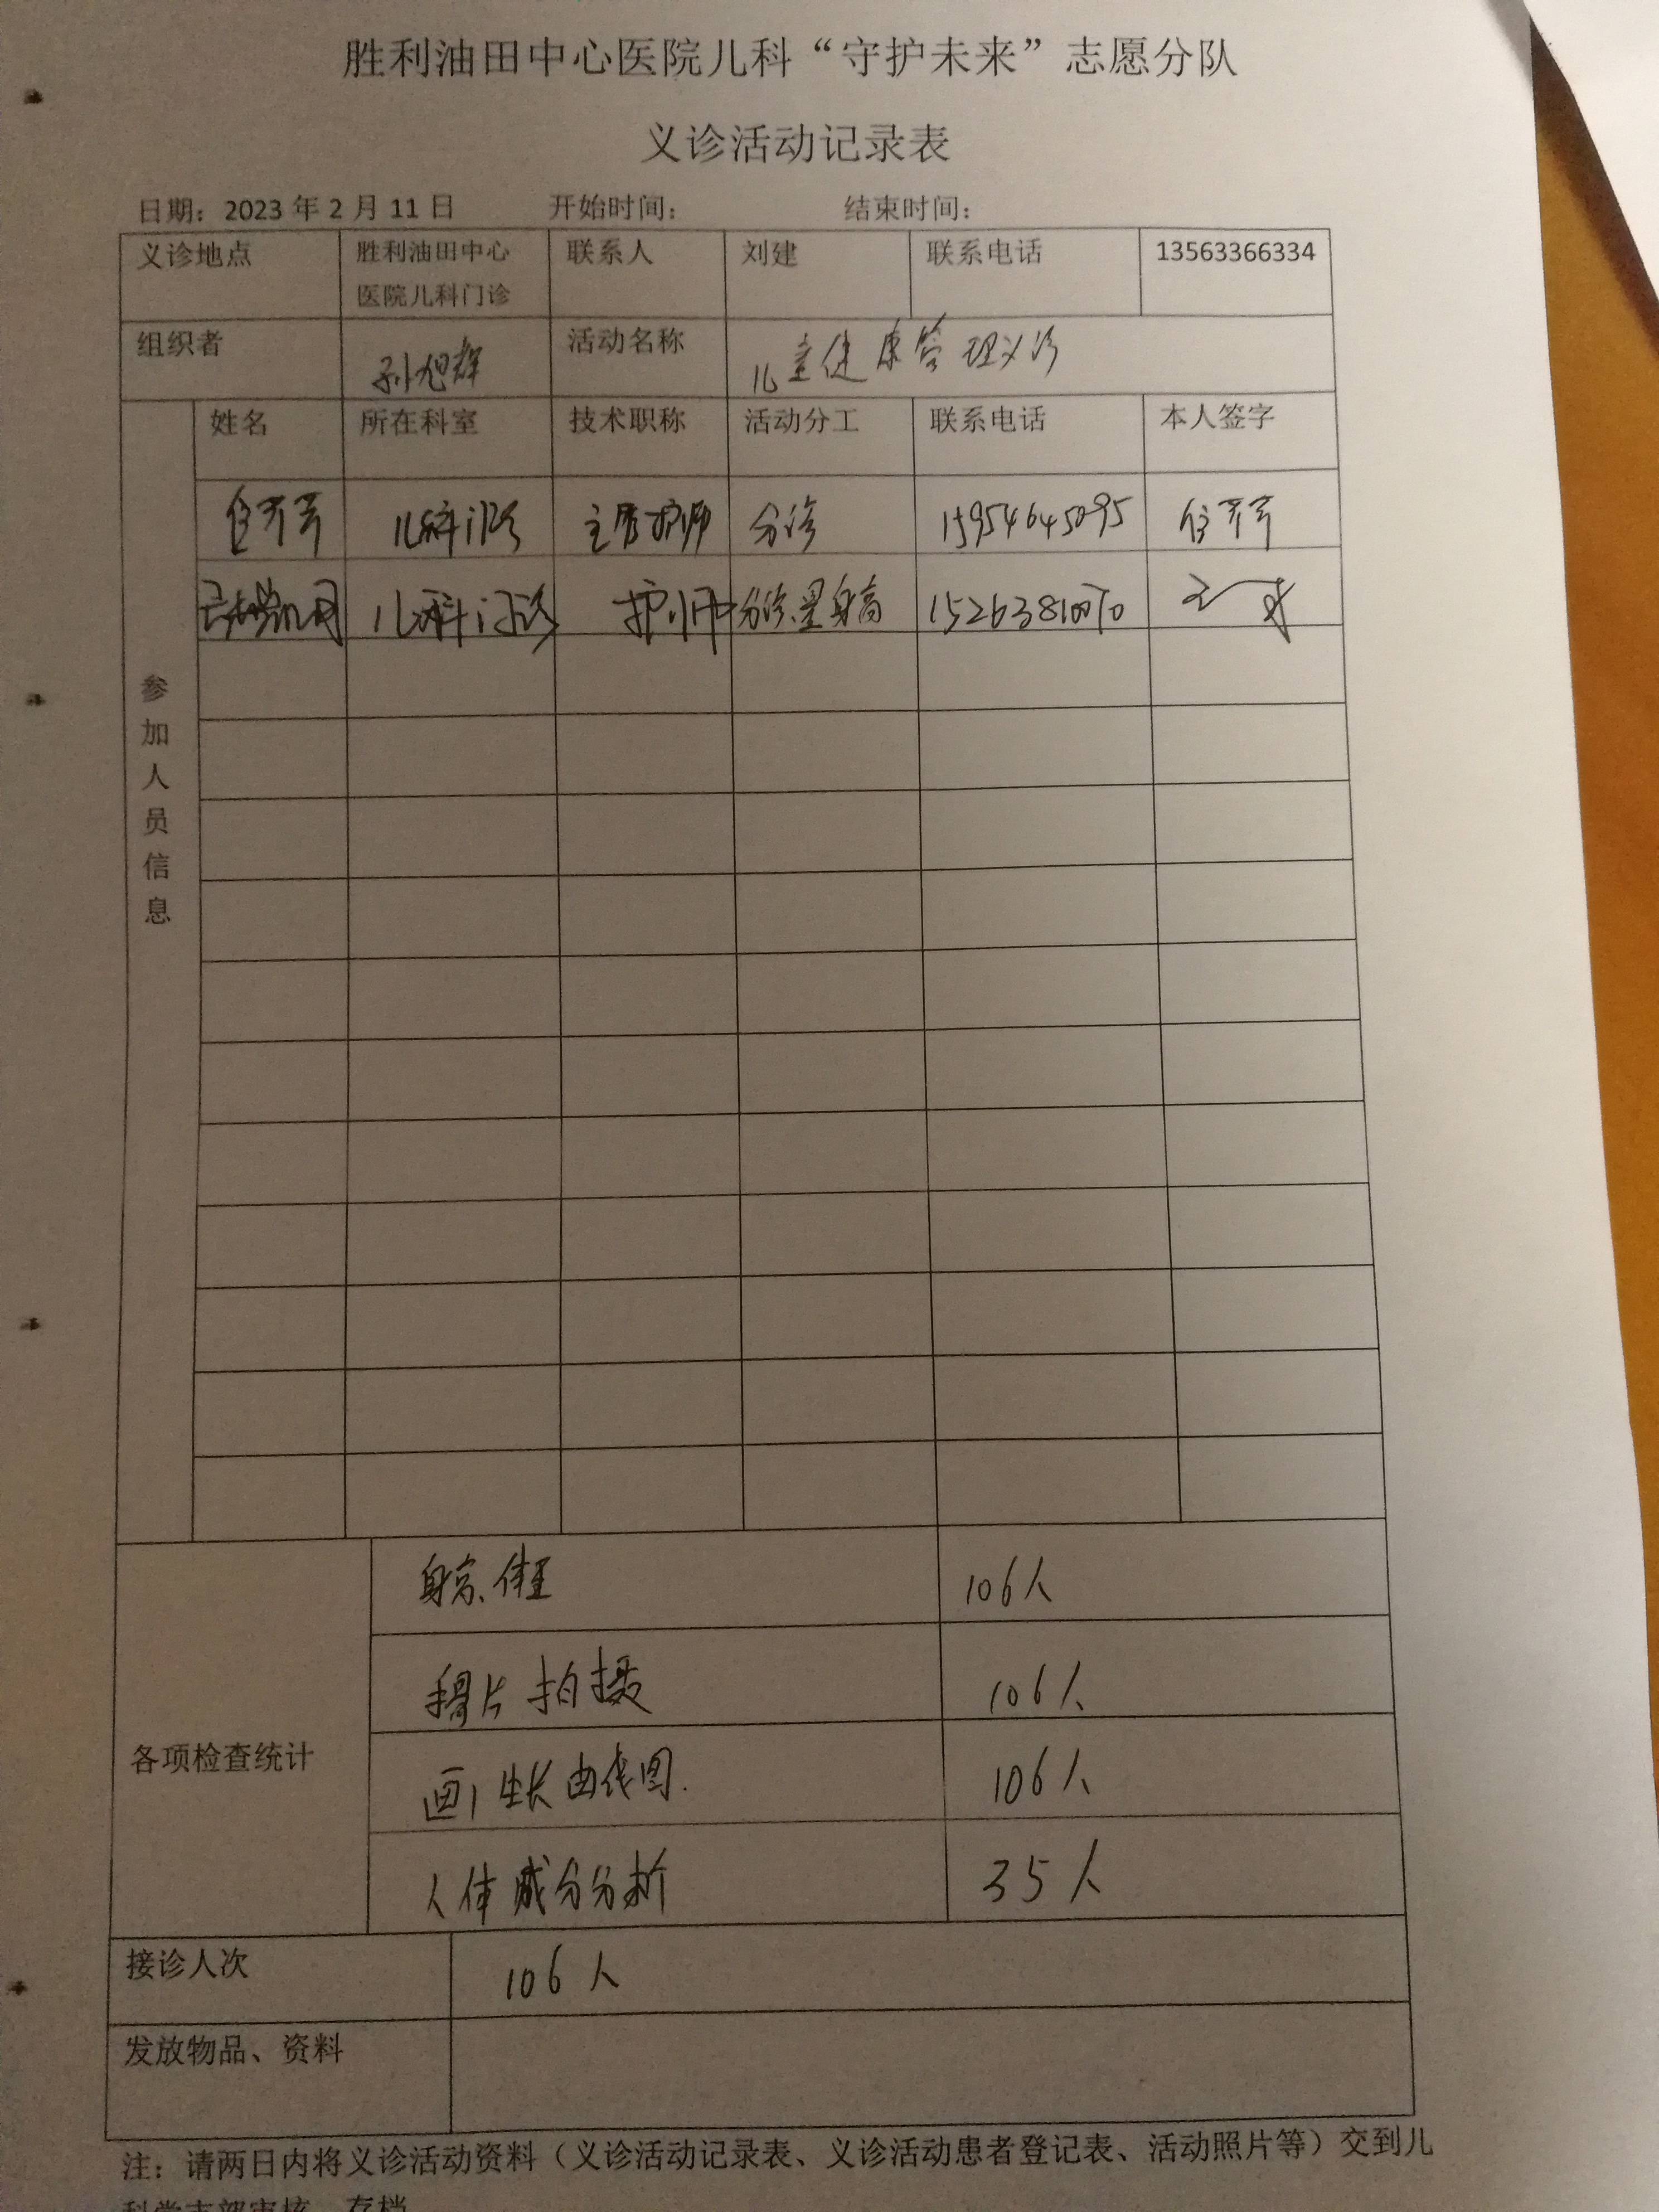 胜利油田中心医院儿科“守护未来”志愿分队
义诊活动记录表
日期：2023 年 2 月 11 日 开始时间： 结束时间：
义诊地点 胜利油田中心 联系人 刘建 联系电话 13563366334
医院儿科门诊
组织者 孙旭群 活动名称 儿童健康管理义诊
姓名 所在科室 技术职称 活动分工 联系电话 本人签字
儿科门诊 主管护师 分诊 15954645095
儿科门诊 护师 分诊、量身高
参加人员信息
各项检查统计
身高、体重 106人
骨片拍摄 106人
画生长曲线图. 106人
人体成分分析 35人
接诊人次 106人
发放物品、资料
注：请两日内将义诊活动资料（义诊活动记录表、义诊活动患者登记表、活动照片等）交到儿
科党支部审核、存档